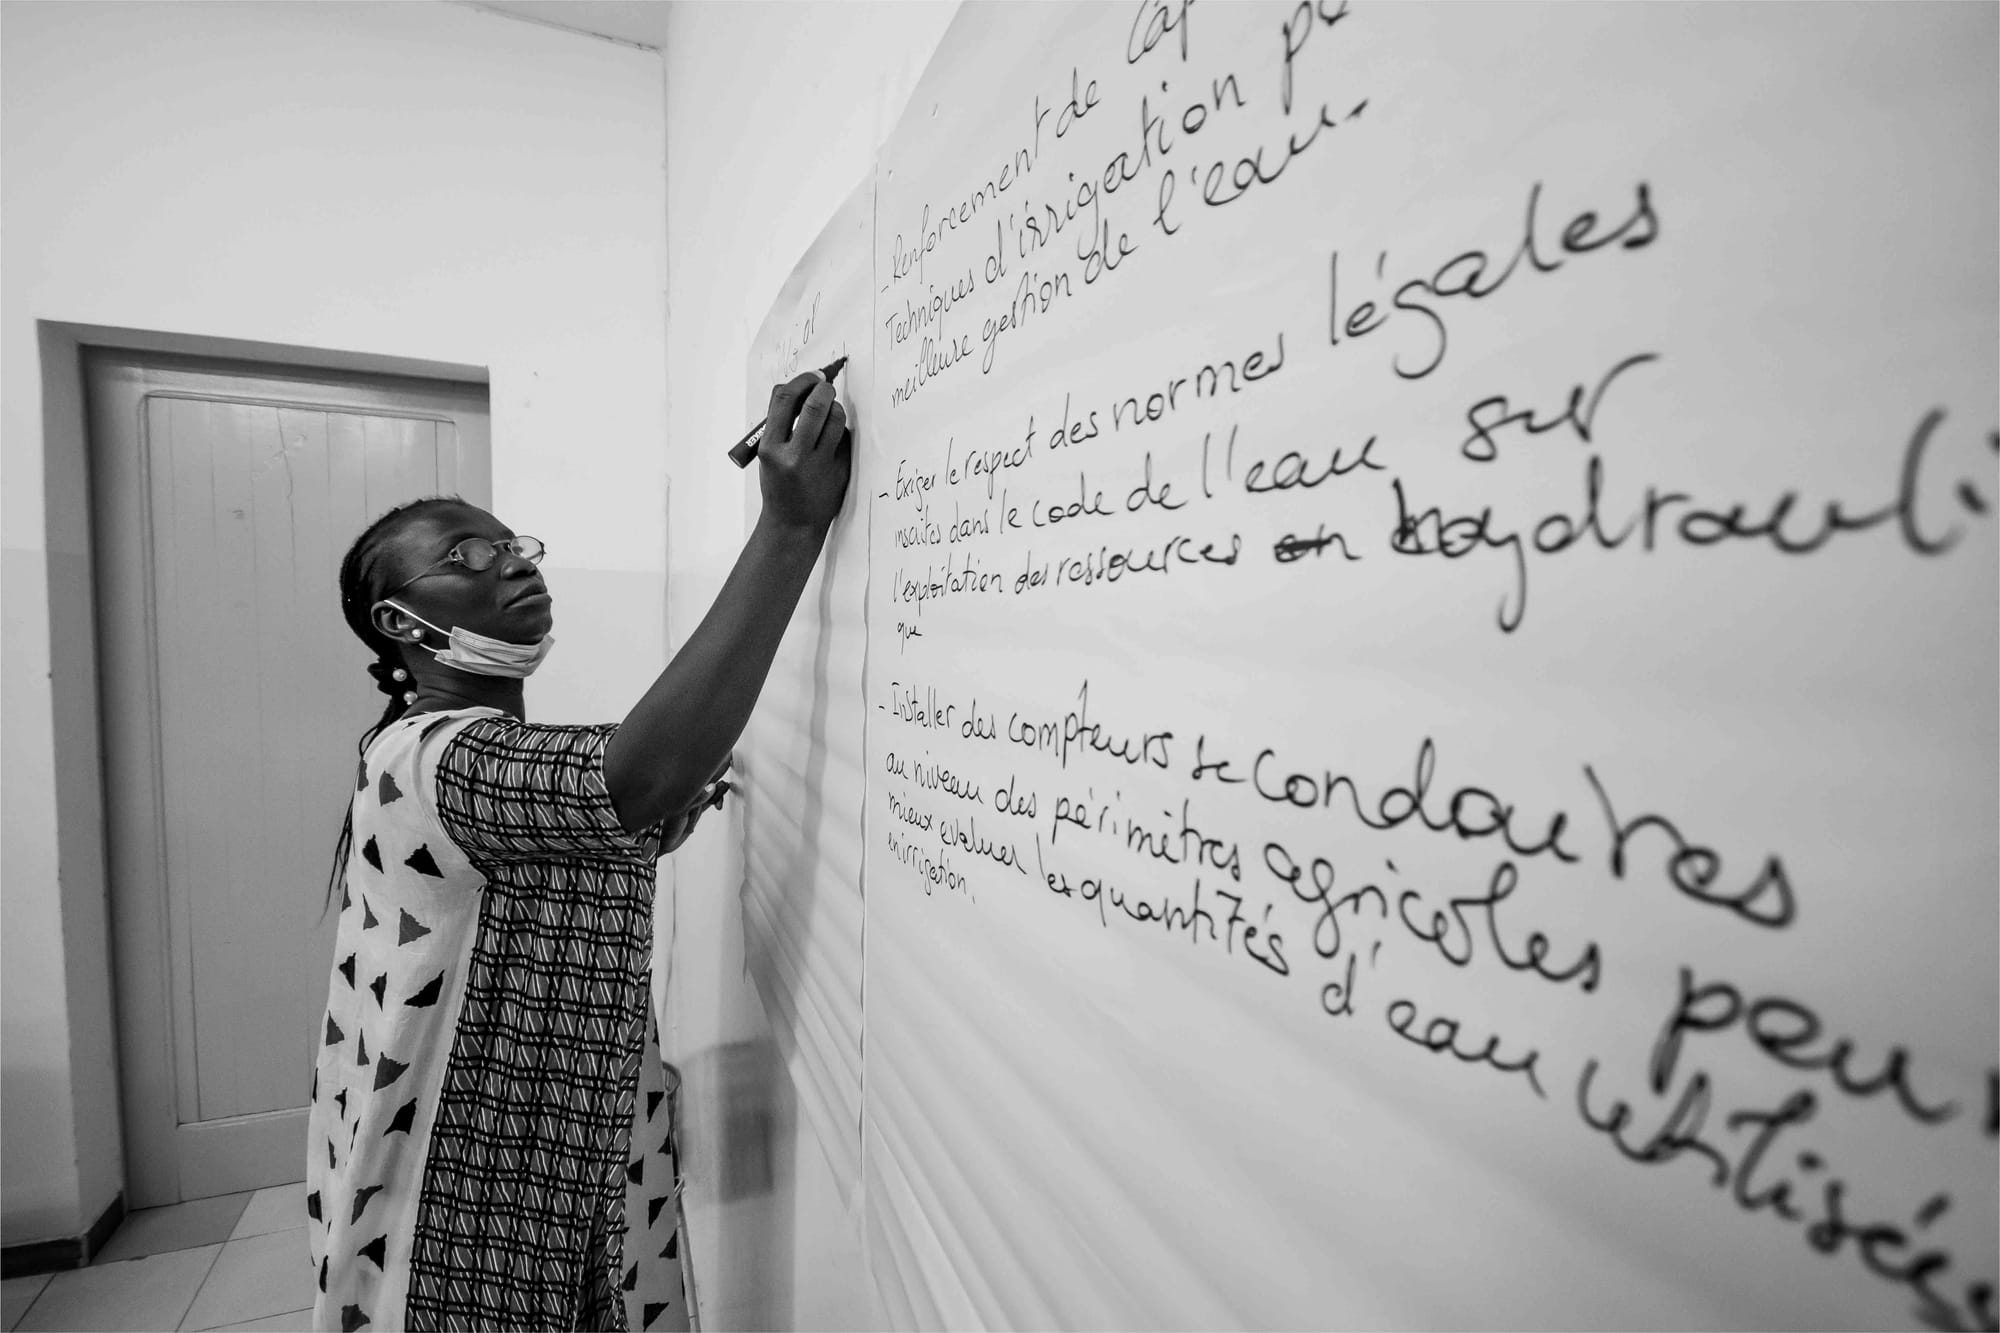 - Renforcement de Cap
Techniques d'irrigation po
meilleure gestion de l'eau.
- Exiger le respect des normes légales
inscrites dans le code de l'eau sur
l'exploitation des ressources en hydrauli
que
- Installer des compteurs secondaires
au niveau des périmètres agricoles pour
mieux evaluer les quantités d'eau utilisées
en irrigation.